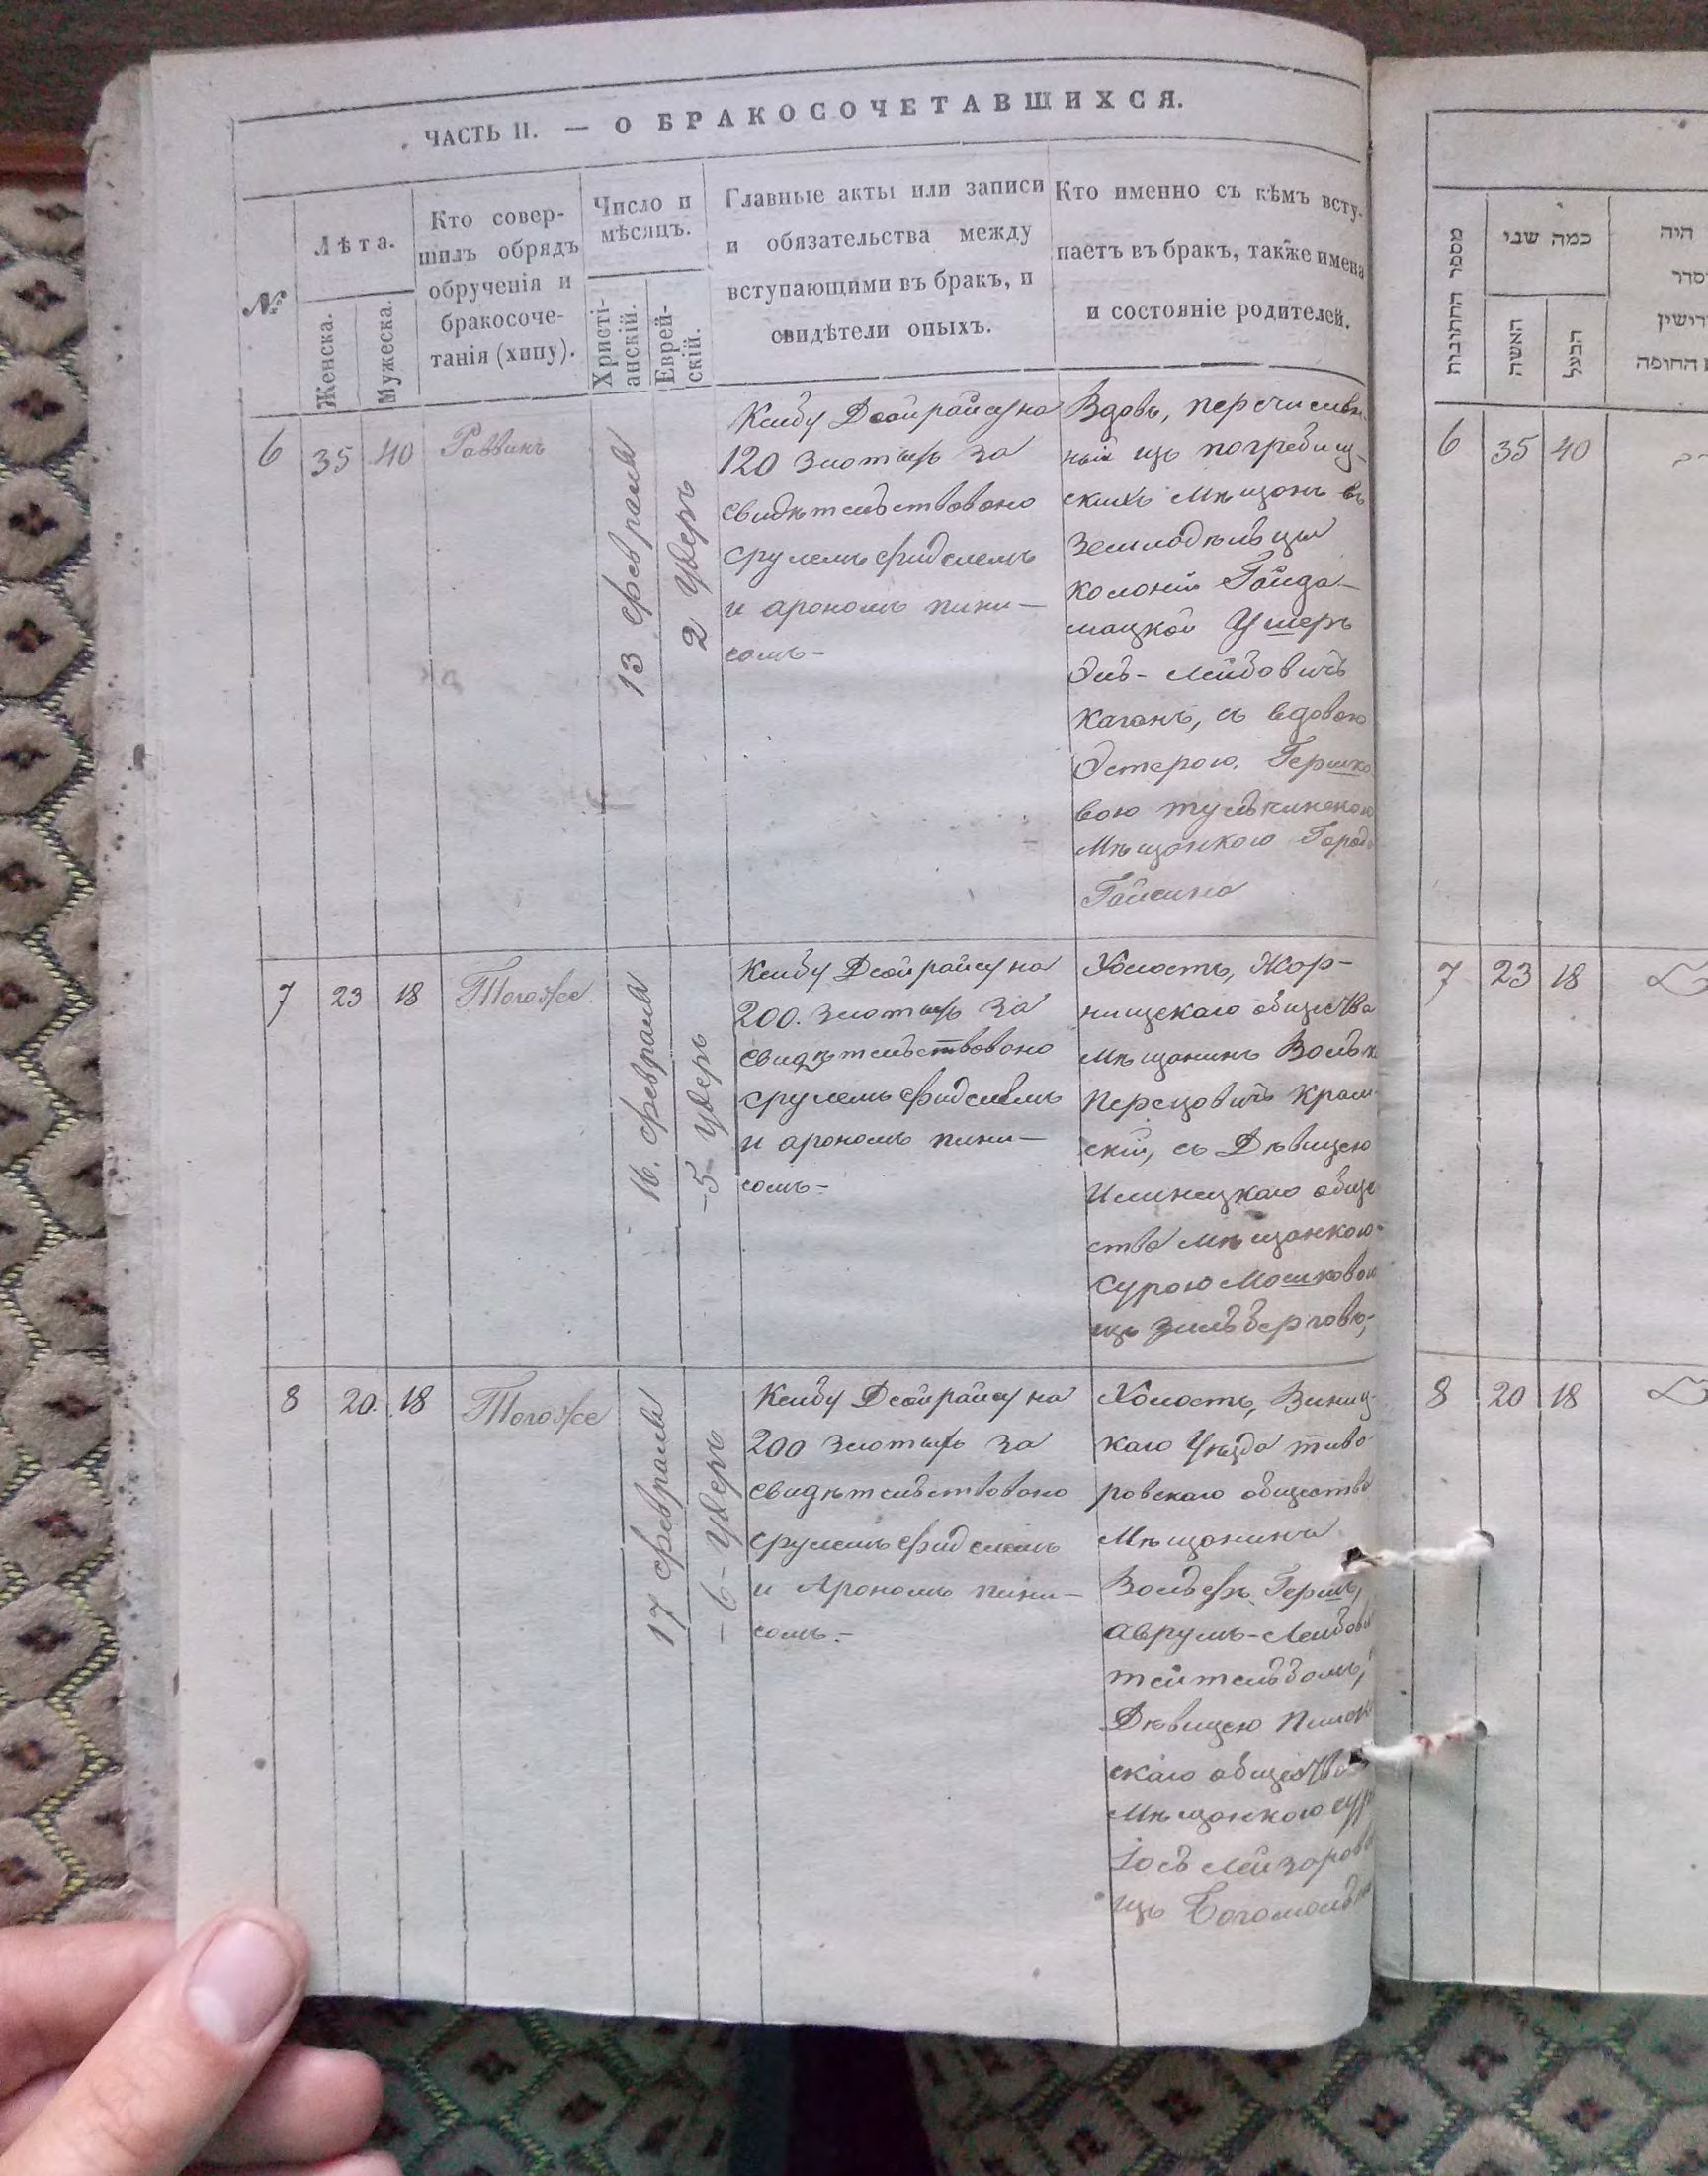 ЧАСТЬ II. — О БРАКОСОЧЕТАВШИХСЯ.
№
Лѣта.
Женска.
Мужеска.
Кто совер-
шилъ обрядъ
обрученія и
бракосоче-
танія (хипу).
Число и
мѣсяцъ.
Христі-
анскій.
Еврей-
скій.
Главные акты или записи
и обязательства между
вступающими въ бракъ, и
свидѣтели оныхъ.
Кто именно съ кѣмъ всту-
паетъ въ бракъ, также имена
и состояніе родителей.
6
35
40
Раввинъ
13 февраля
2 Удеръ
на
120 злотыхъ за
свидѣтельствовано
срулемъ фиделемъ
и арономъ пини-
сомъ-
Вдовъ, перечислен
ный изъ погребищ-
скихъ мѣщанъ въ
земледѣльцы
колоніи Гайда-
мацкой Ушеръ
Эль-Лейбовичъ
Каганъ, съ вдовою
Эстерою Гершко
вою тульчинскою
мѣщанкою Города
Гайсина
7
23
18
Тогоже.
16. февраля
-5- Удеръ
на
200. злотыхъ за
свидѣтельствовано
срулемъ фиделемъ
и арономъ пини-
сомъ-
Холостъ, Жор-
нищскаго общества
мѣщанинъ Волько
Перецовичъ
скій, съ Дѣвицею
Илинецкаго обще
ства мѣщанкою
Сурою Мошковою
изъ Зильберговъ,
8
20.
18
Тогоже
17 февраля
-6- Удеръ
на
200 злотыхъ за
свидѣтельствовано
срулемъ фиделемъ
и Арономъ пини-
сомъ.-
Холостъ, Винниц-
каго Уѣзда тыво
ровскаго общества
мѣщанинъ
Вольфъ Гершъ,
аврумъ-Лейбов
тейтельбомъ,
Дѣвицею
скаго общества
мѣщанкою
Лейзоров
изъ Богомол
מספר החתונות
כמה שני
האשה
הבעל
היה
סדר
החופה
6
35
40
7
23
18
8
20
18